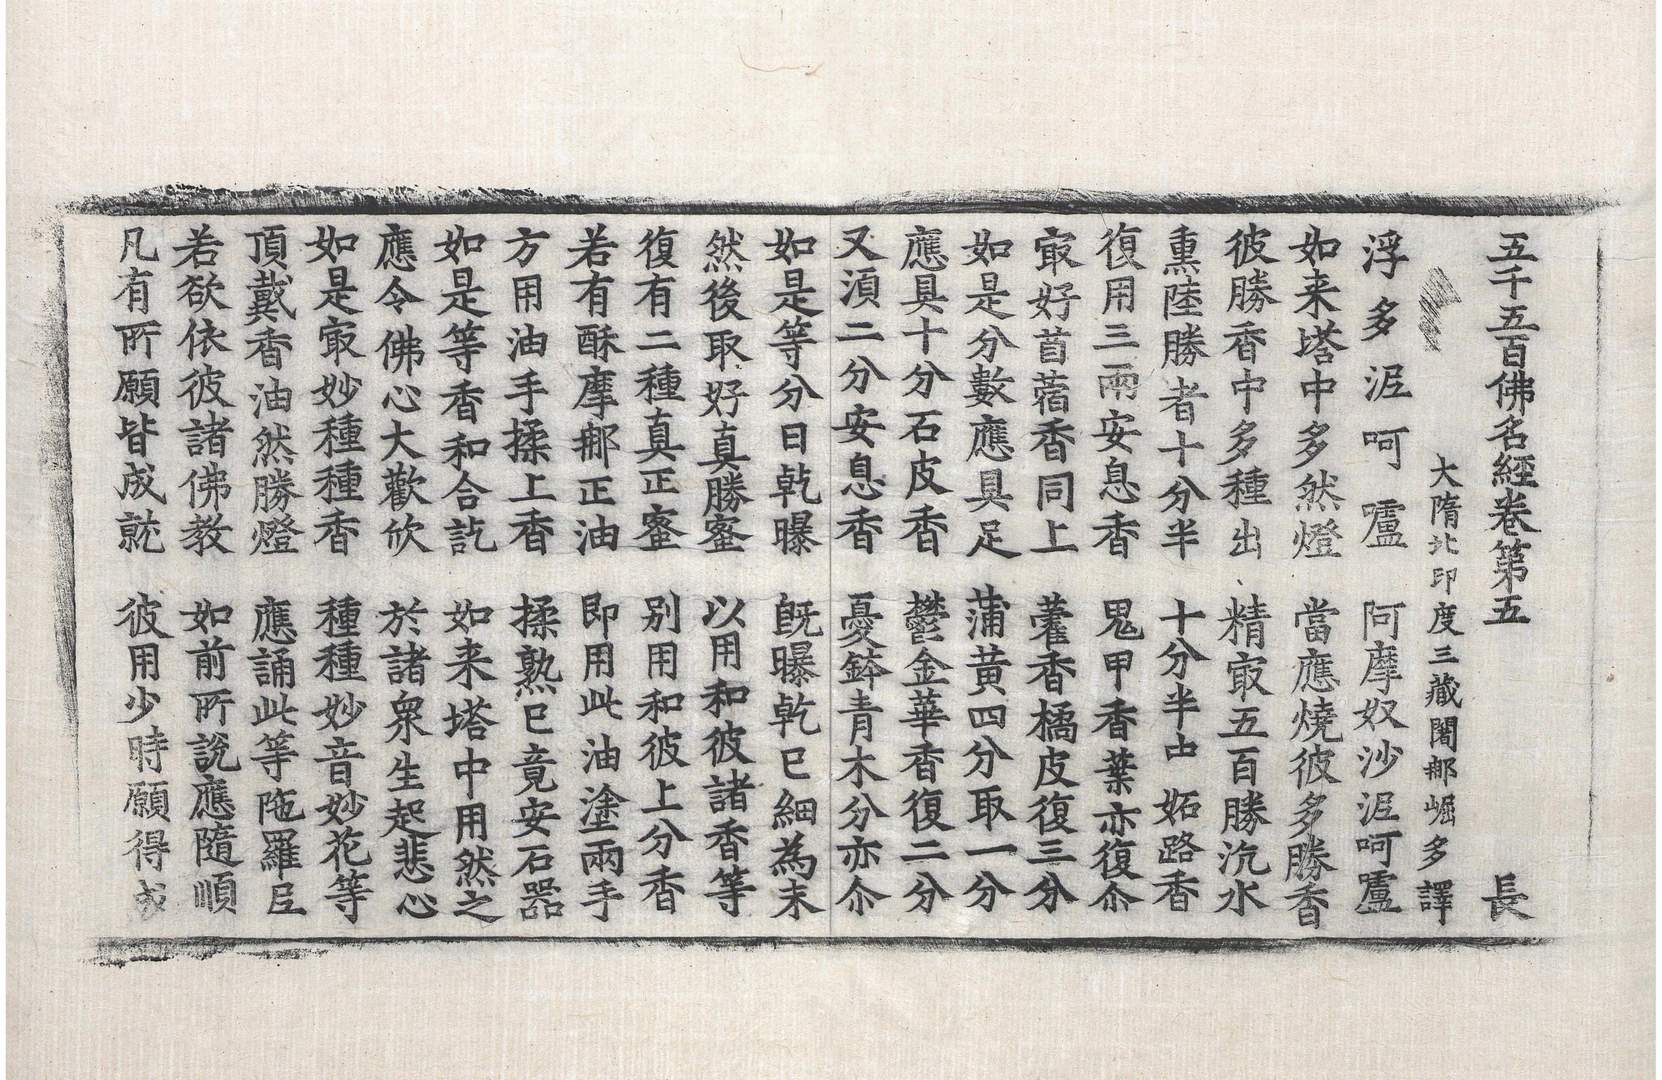 五千五百佛名經卷第五　長
大隋北印度三藏闍那崛多譯
浮多泥呵嚧　阿摩奴沙泥呵嚧
如来塔中多然燈　當應燒彼多勝香
彼勝香中多種出　精㝡五百勝沉水
熏陸勝者十分半　十分半㞢妬路香
復用三兩安息香　鬼甲香葉亦復尒
㝡好苜蓿香同上　藿香橘皮復三分
如是分數應具足　蒲黃四分取一分
應具十分石皮香　鬱金華香復二分
又湏二分安息香　憂鉢青木分亦尒
如是等分日乾曝　既曝乾已細為末
然後取好真勝蜜　以用和彼諸香等
復有二種真正蜜　别用和彼上分香
若有酥摩郍正油　即用此油塗兩手
方用油手揉上香　揉熟已竟安石器
如是等香和合訖　如来塔中用然之
應令佛心大歡欣　於諸衆生起悲心
如是㝡妙種種香　種種妙音妙花等
頂戴香油然勝燈　應誦此等陁羅尼
若欲依彼諸佛教　如前所說應隨順
凡有所願皆成就　彼用少時願得成